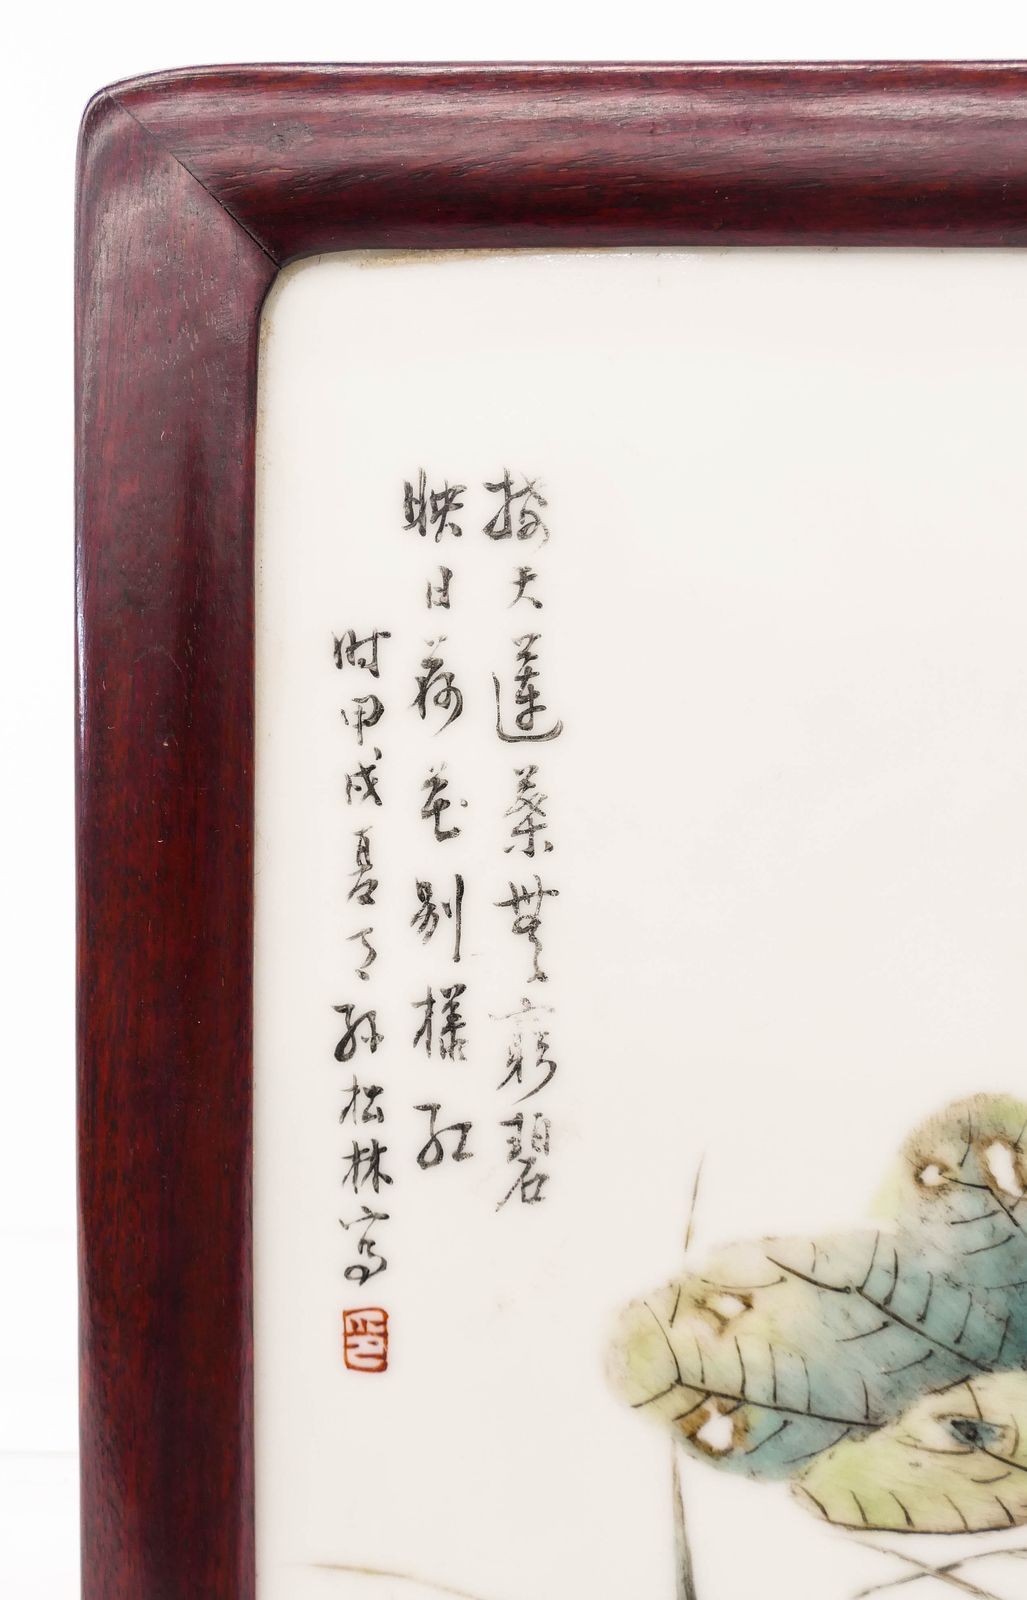 接天蓮葉無窮碧
映日荷花別樣紅
时甲戌夏月孫松林寫
印